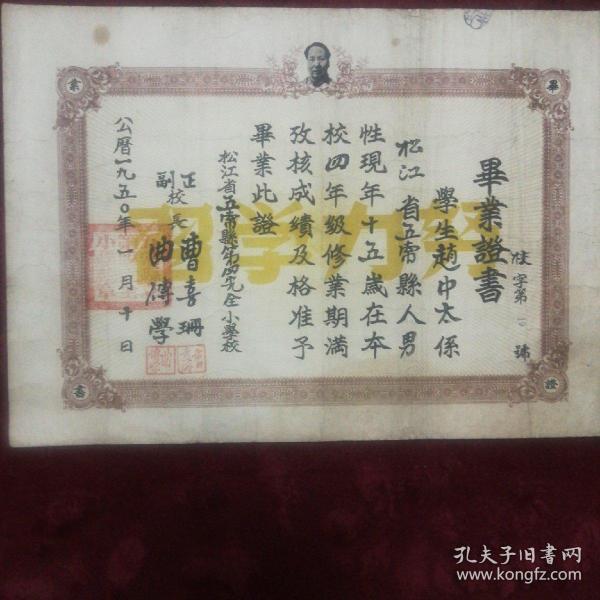 畢業證書
字第一〇號
學生趙中太係
松江省五常縣人男
性現年十五歲在本
校四年級修業期滿
攷核成績及格准予
畢業此證
松江省五常縣第四完全小學校
正副校長
曹喜珊
曲傅學
公曆一九五〇年一月十日
努力學習
畢業證書
孔夫子旧书网
www.kongfz.com